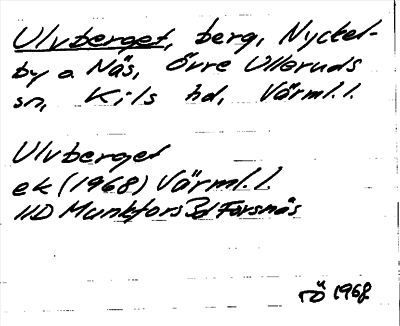 Ulvberget, berg, Nyckel-
by o. Näs, Övre Ulleruds
sn, Kils hd, Värml.l.
Ulvberget
ek (1968) Värml.l.
11D Munkfors 3d Forsnäs
rö 1968